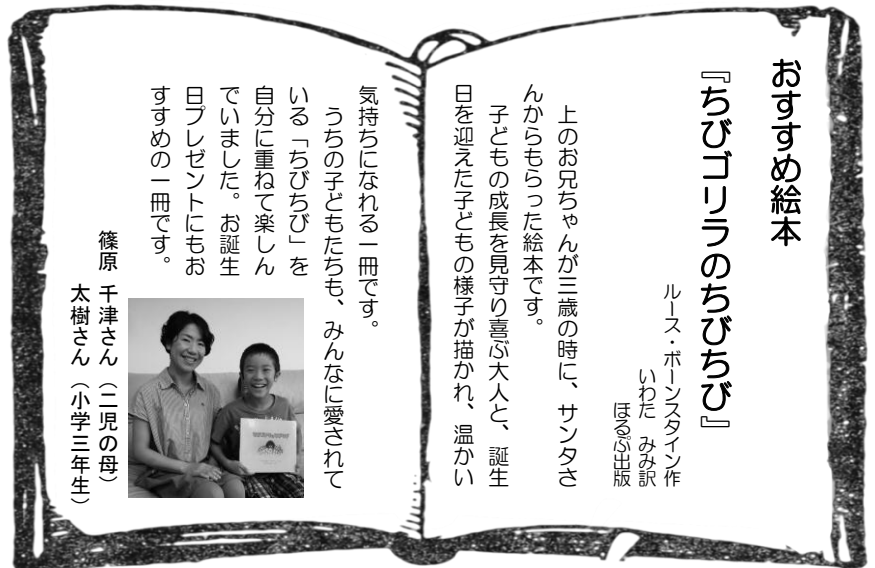 おすすめ絵本
『ちびゴリラのちびちび』
ルース・ボーンスタイン作
いわた　みみ訳
ほるぷ出版
上のお兄ちゃんが三歳の時に、サンタさ
んからもらった絵本です。
子どもの成長を見守り喜ぶ大人と、誕生
日を迎えた子どもの様子が描かれ、温かい
気持ちになれる一冊です。
うちの子どもたちも、みんなに愛されて
いる「ちびちび」を
自分に重ねて楽しん
でいました。お誕生
日プレゼントにもお
すすめの一冊です。
篠原　千津さん（二児の母）
太樹さん（小学三年生）